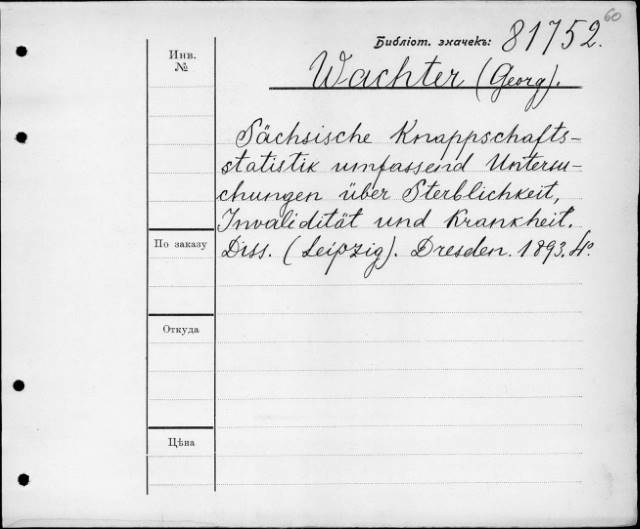 60
Библіот. значекъ: 81752.
Инв. №
Wachter (Georg).
Sächsische Knappschafts-
statistik umfassend Untersu-
chungen über Sterblichkeit,
Invalidität und Krankheit.
По заказу
Diss. (Leipzig). Dresden. 1893. 4º.
Откуда
Цѣна